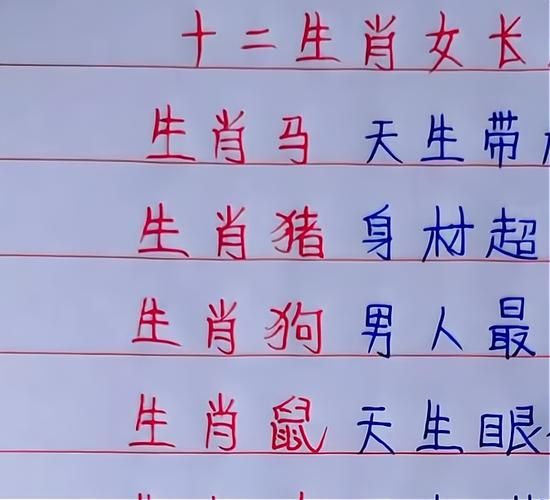 十二生肖女长
生肖马 天生带
生肖猪 身材超
生肖狗 男人最
生肖鼠 天生眼